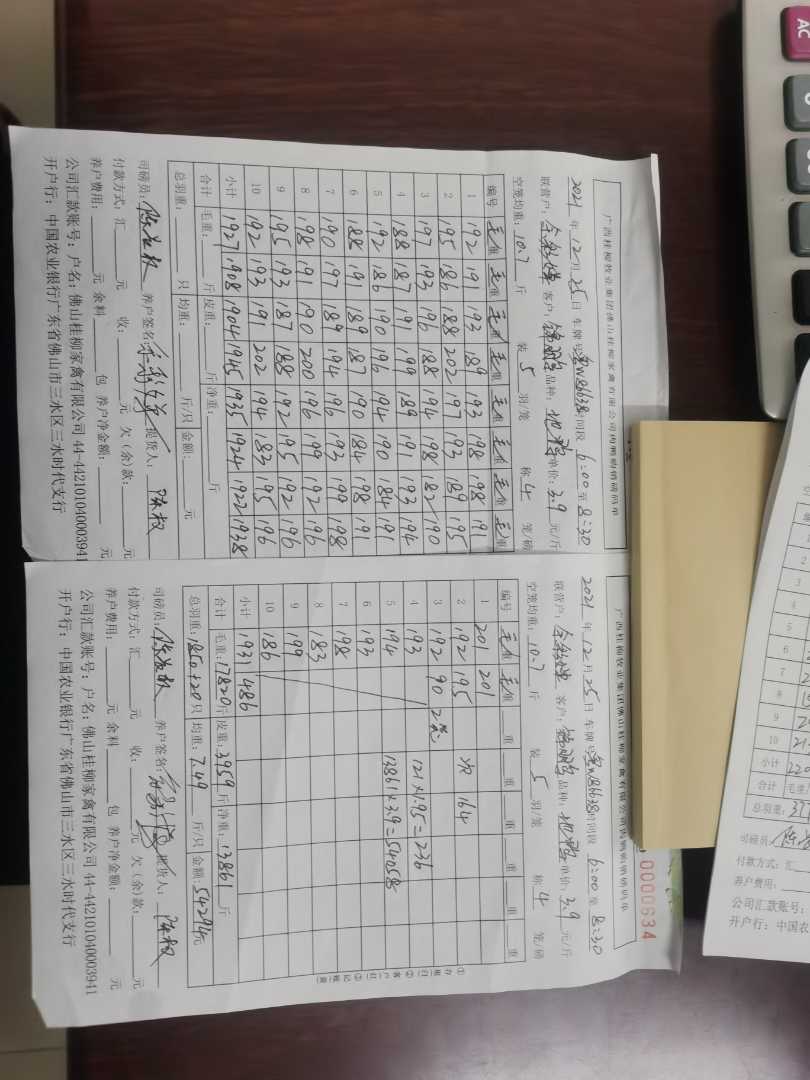 广西桂柳牧业集团佛山桂柳家禽有限公司肉鸭购销磅码单
2021年12月25日 车牌号 粤W86638 时间段 6:00至8:30
联营户: 客户: 品种: 单价: 3.9 元/斤
空笼均重: 10.7 斤 装 5 羽/笼 称 4 笼/磅
编号 毛重 毛重 毛重 毛重 毛重 毛重 毛重 毛重
1 192 191 193 189 193 198 198 191
2 195 186 188 202 197 193 189 195
3 197 193 196 188 194 198 182 190
4 188 187 191 199 189 191 193 194
5 192 186 190 196 194 190 184 191
6 188 191 189 187 190 184 198 191
7 190 197 189 194 196 193 199 198
8 198 191 190 200 196 199 192 196
9 195 193 187 188 192 195 192 196
10 192 193 191 202 194 183 195 196
小计 1927 1908 1904 1945 1935 1924 1922 1938
合计 毛重: 斤 皮重: 斤 净重: 斤
总羽重: 只 均重: 斤/只 金额: 元
司磅员: 养户签名: 提货人: 陈权
付款方式: 汇 元 收: 元 欠(余)款: 元
养户费用: 元 余料 包 养户净金额: 元
公司汇款账号: 户名: 佛山桂柳家禽有限公司 44-442101040003941
开户行: 中国农业银行广东省佛山市三水区三水时代支行
广西桂柳牧业集团佛山桂柳家禽有限公司肉鸭购销磅码单
0000634
2021年12月25日 车牌号 粤W86638 时间段 6:00至8:30
联营户: 客户: 品种: 单价: 3.9 元/斤
空笼均重: 10.7 斤 装 5 羽/笼 称 4 笼/磅
编号 毛重 毛重 重 重 重 重 重
1 201 201
2 192 195 次 164
3 192 90 2笼
4 193 121×1.95=236
5 194 13861×3.9=54058
6 193
7 198
8 183
9 199
10 186
小计 1931 486
合计 毛重: 17820 斤 皮重: 3959 斤 净重: 13861 斤
总羽重: 1850+20 只 均重: 7.49 斤/只 金额: 54294 元
司磅员: 养户签名: 提货人: 陈权
付款方式: 汇 元 收: 元 欠(余)款: 元
养户费用: 元 余料 包 养户净金额: 元
公司汇款账号: 户名: 佛山桂柳家禽有限公司 44-442101040003941
开户行: 中国农业银行广东省佛山市三水区三水时代支行
①存根(白) ②客户(红) ③记账(黄)
1
2
3
4
5
6
7
8
9
10 21
小计 220
合计 毛重
总羽重: 37
司磅员:
付款方式: 汇
养户费用:
公司汇款账号:
开户行: 中国农
AC